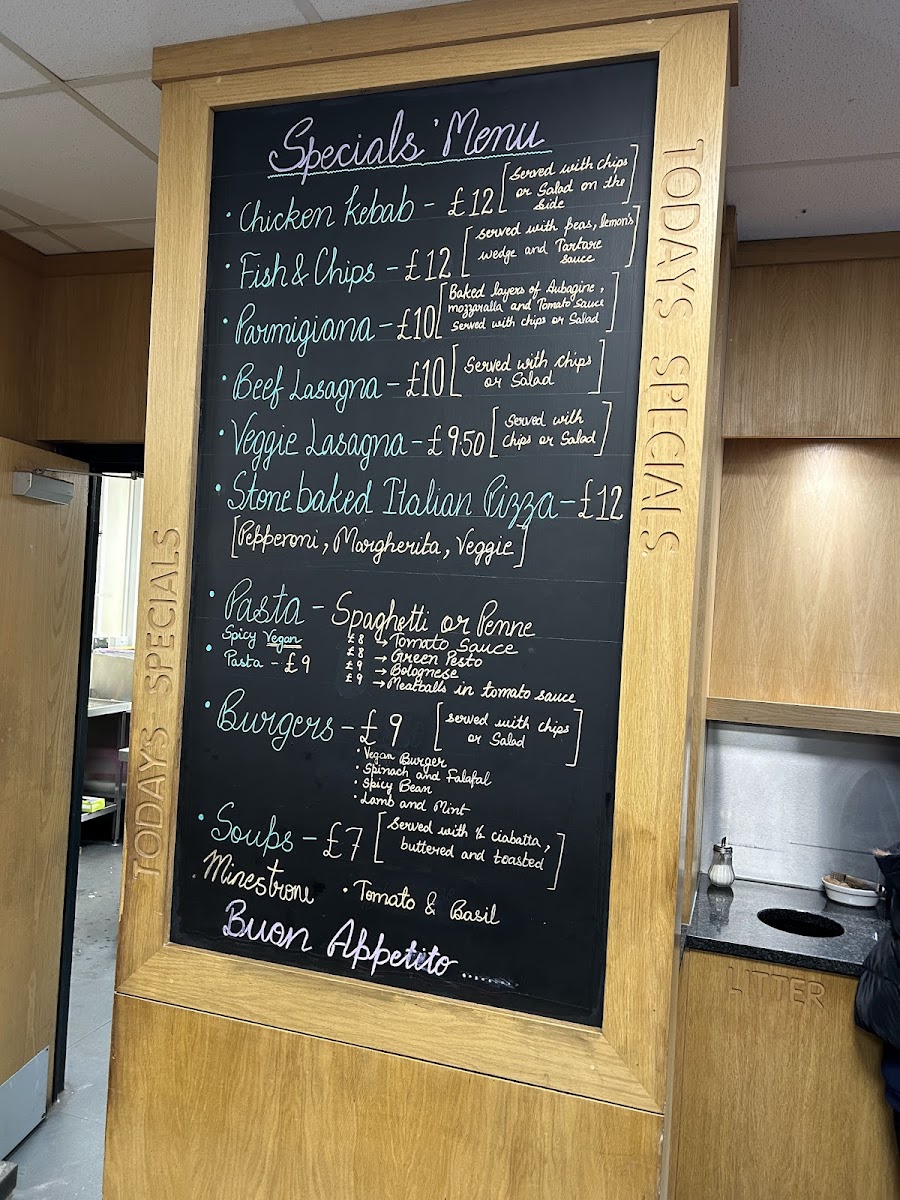 Specials' Menu
• Chicken Kebab - £12 [Served with chips
or Salad on the
Side]
• Fish & Chips - £12 [served with peas, lemon's
wedge and Tartare
sauce]
• Parmigiana - £10 [Baked layers of Aubagine,
mozzaralla and Tomato Sauce
served with chips or Salad]
• Beef Lasagna - £10 [Served with chips
or Salad]
• Veggie Lasagna - £9.50 [Served with
chips or Salad]
• Stonebaked Italian Pizza - £12
[Pepperoni, Margherita, Veggie]
• Pasta - Spaghetti or Penne
£8 → Tomato Sauce
£8 → Green Pesto
£9 → Bolognese
£9 → Meatballs in tomato sauce
• Spicy Vegan
Pasta - £9
• Burgers - £9 [served with chips
or Salad]
• Vegan Burger
• Spinach and Falafal
• Spicy Bean
• Lamb and Mint
• Soups - £7 [Served with ½ ciabatta,
buttered and toasted]
• Minestroni • Tomato & Basil
Buon Appetito......
TODAYS SPECIALS
TODAYS SPECIALS
LITTER